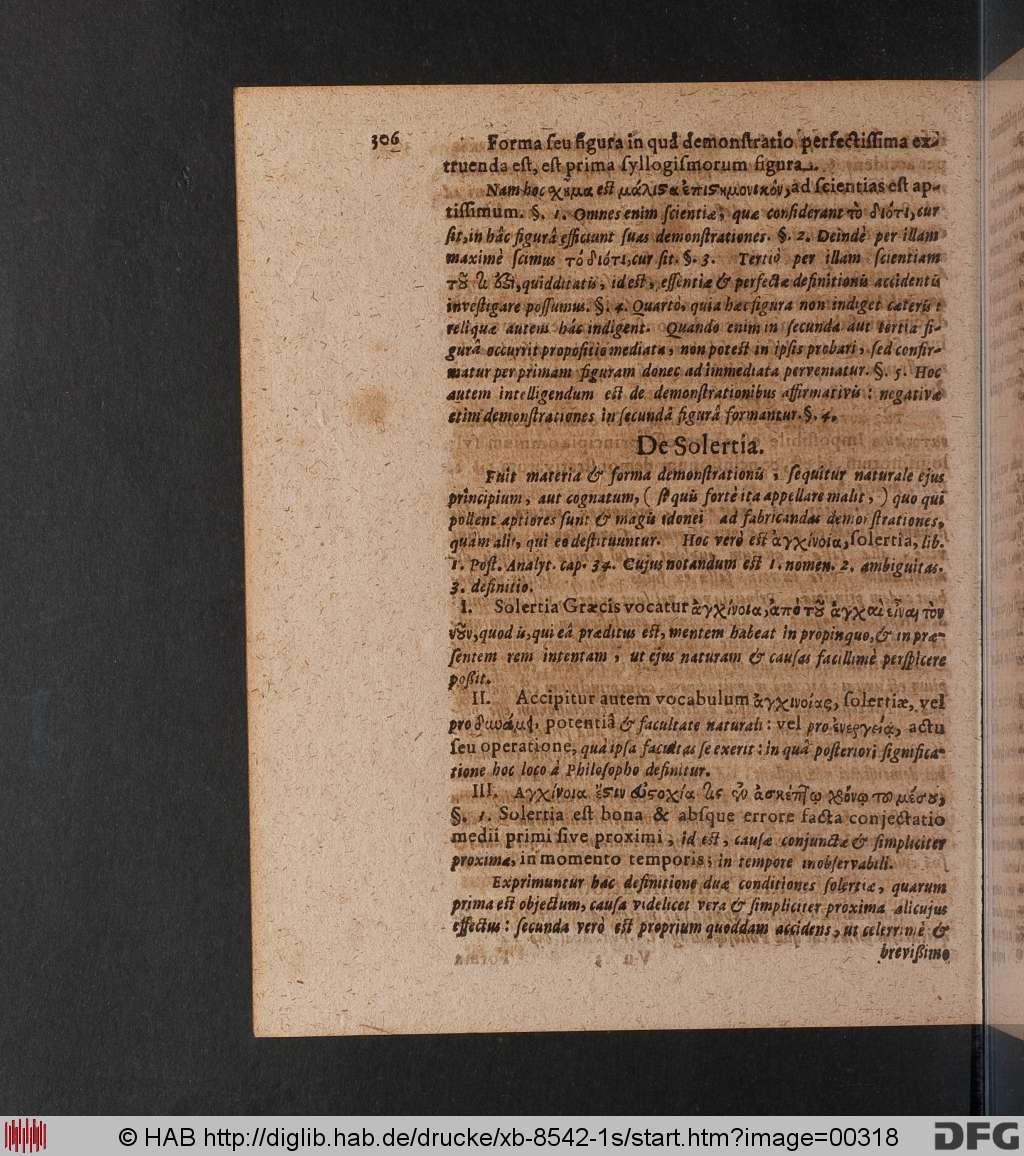 306
Forma ſeu figura in quâ demonſtratio perfectiſſima ex-
truenda eſt, eſt prima ſyllogiſmorum figura.
Nam hoc χῆμα eſt μάλιϛα ἐπιϛημονικόν, ad ſcientias eſt ap-
tiſſimum. §. 1. Omnes enim ſcientiæ, quæ conſiderant τὸ διότι, cur
ſit, in hâc figurâ efficiunt ſuas demonſtrationes. §. 2. Deindè per illam
maximè ſcimus τὸ διότι, cur ſit. §. 3. Tertiò per illam ſcientiam
quidditatis, id eſt, eſſentiæ & perfectæ definitionis accidentis
inveſtigare poſſumus. §. 4. Quartò, quia hæc figura non indiget cæteris:
reliquæ autem hâc indigent. Quando enim in ſecunda aut tertia fi-
gurâ occurrit propoſitio mediata, non poteſt in ipſis probari, ſed confir-
matur per primam figuram donec ad immediata perveniatur. §. 5. Hoc
autem intelligendum eſt de demonſtrationibus affirmativis: negativæ
etim demonſtrationes in ſecundâ figurâ formantur. §. 4.
De Solertia.
Fuit materia & forma demonſtrationis, ſequitur naturale ejus
principium, aut cognatum, (ſi quis fortè ita appellare malit,) quo qui
pollent aptiores ſunt & magis idonei ad fabricandas demonſtrationes,
quàm alii, qui eo deſtituuntur. Hoc verò eſt ἀγχίνοια, ſolertia, lib.
1. Poſt. Analyt. cap. 34. Cujus notandum eſt 1. nomen. 2. ambiguitas.
3. definitio.
I. Solertia Græcis vocatur ἀγχίνοια, ἀπὸ τοῦ ἄγχι εἶναι τὸν
νοῦν, quod is, qui eâ præditus eſt, mentem habeat in propinquo, & in præ-
ſentem rem intentam, ut ejus naturam & cauſas facillimè perſpicere
poſſit.
II. Accipitur autem vocabulum ἀγχινοίας, ſolertiæ, vel
pro δυνάμει, potentiâ & facultate naturali: vel pro ἐνεργείᾳ, actu
ſeu operatione, quâ ipſa facultas ſe exerit: in quâ poſteriori ſignifica-
tione hoc loco à Philoſopho definitur.
III. Αγχίνοια ἔϛιν εὐϛοχία τις ἐν ἀσκέπτῳ χρόνῳ τοῦ μέσου,
§. 1. Solertia eſt bona & abſque errore facta conjectatio
medii primi ſive proximi, id eſt, cauſæ conjunctæ & ſimpliciter
proximæ, in momento temporis; in tempore inobſervabili.
Exprimuntur hac definitione duæ conditiones ſolertiæ, quarum
prima eſt objectum, cauſa videlicet vera & ſimpliciter proxima alicujus
effectus: ſecunda verò eſt proprium quoddam accidens, ut celerrimè &
breviſſimo
© HAB http://diglib.hab.de/drucke/xb-8542-1s/start.htm?image=00318
DFG